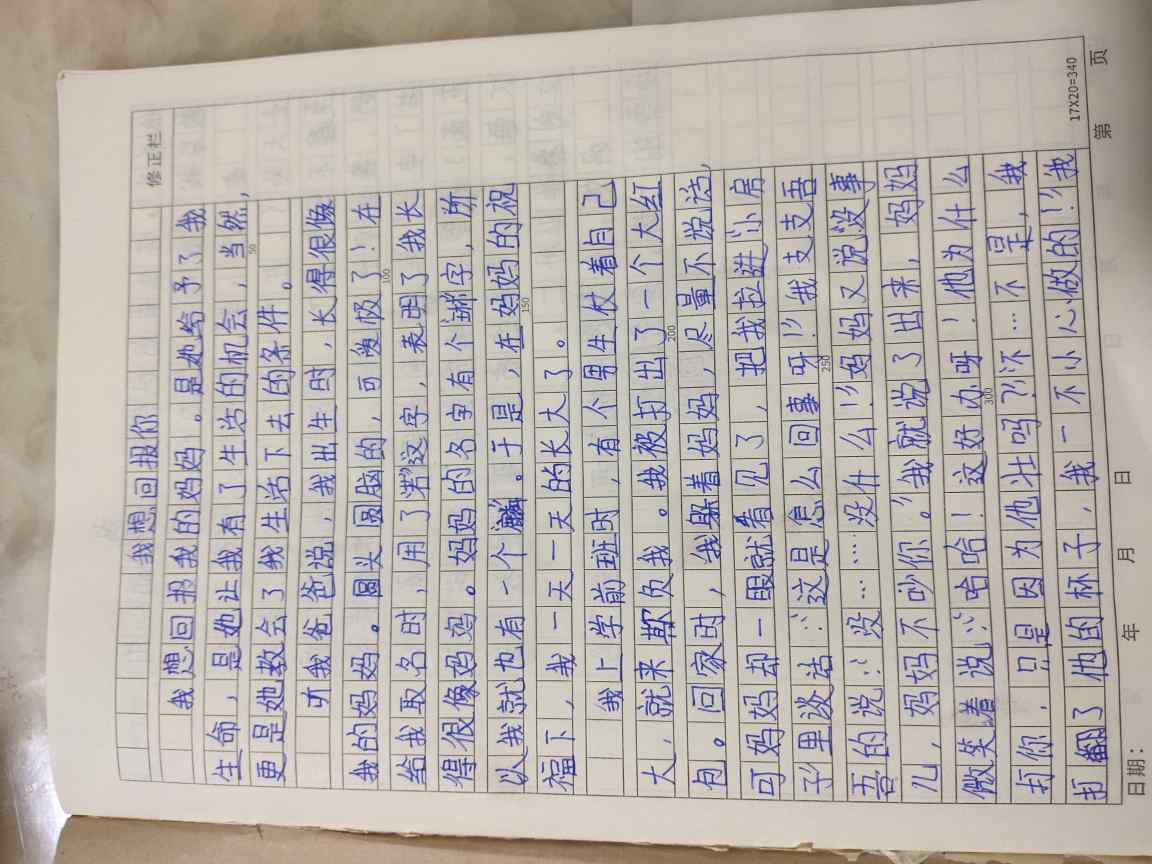 修正栏
我想回报你
我想回报我的妈妈。是她给予了我
生命,是她让我有了生活的机会,当然,
更是她教会了我生活下去的条件。
听我爸爸说,我出生时,长得很像
我的妈妈。圆头圆脑的,可爱极了!在
给我取名时,用了"若"这字,表明了我长
得很像妈妈。妈妈的名字有个"琳"字,所
以我就也有一个"麟"。于是,在妈妈的祝
福下,我一天一天的长大了。
我上学前班时,有个男生仗着自己
大,就来欺负我。我被打出了一个大红
包。回家时,我躲着妈妈,尽量不说话,
可妈妈却一眼就看见了,把我拉进小房
子里谈话:"这是怎么回事呀!"我支支吾
吾的说:"没……没什么!"妈妈又说没事
儿,妈妈不吵你。"我就说了出来,妈妈
微笑着说:"哈哈!这好办呀!他为什么
打你,只是因为他壮吗?""不…不是,我
打翻了他的杯子,我一不小心做的!"我
50
100
150
200
250
300
17X20=340
日期: 年 月 日 第 页